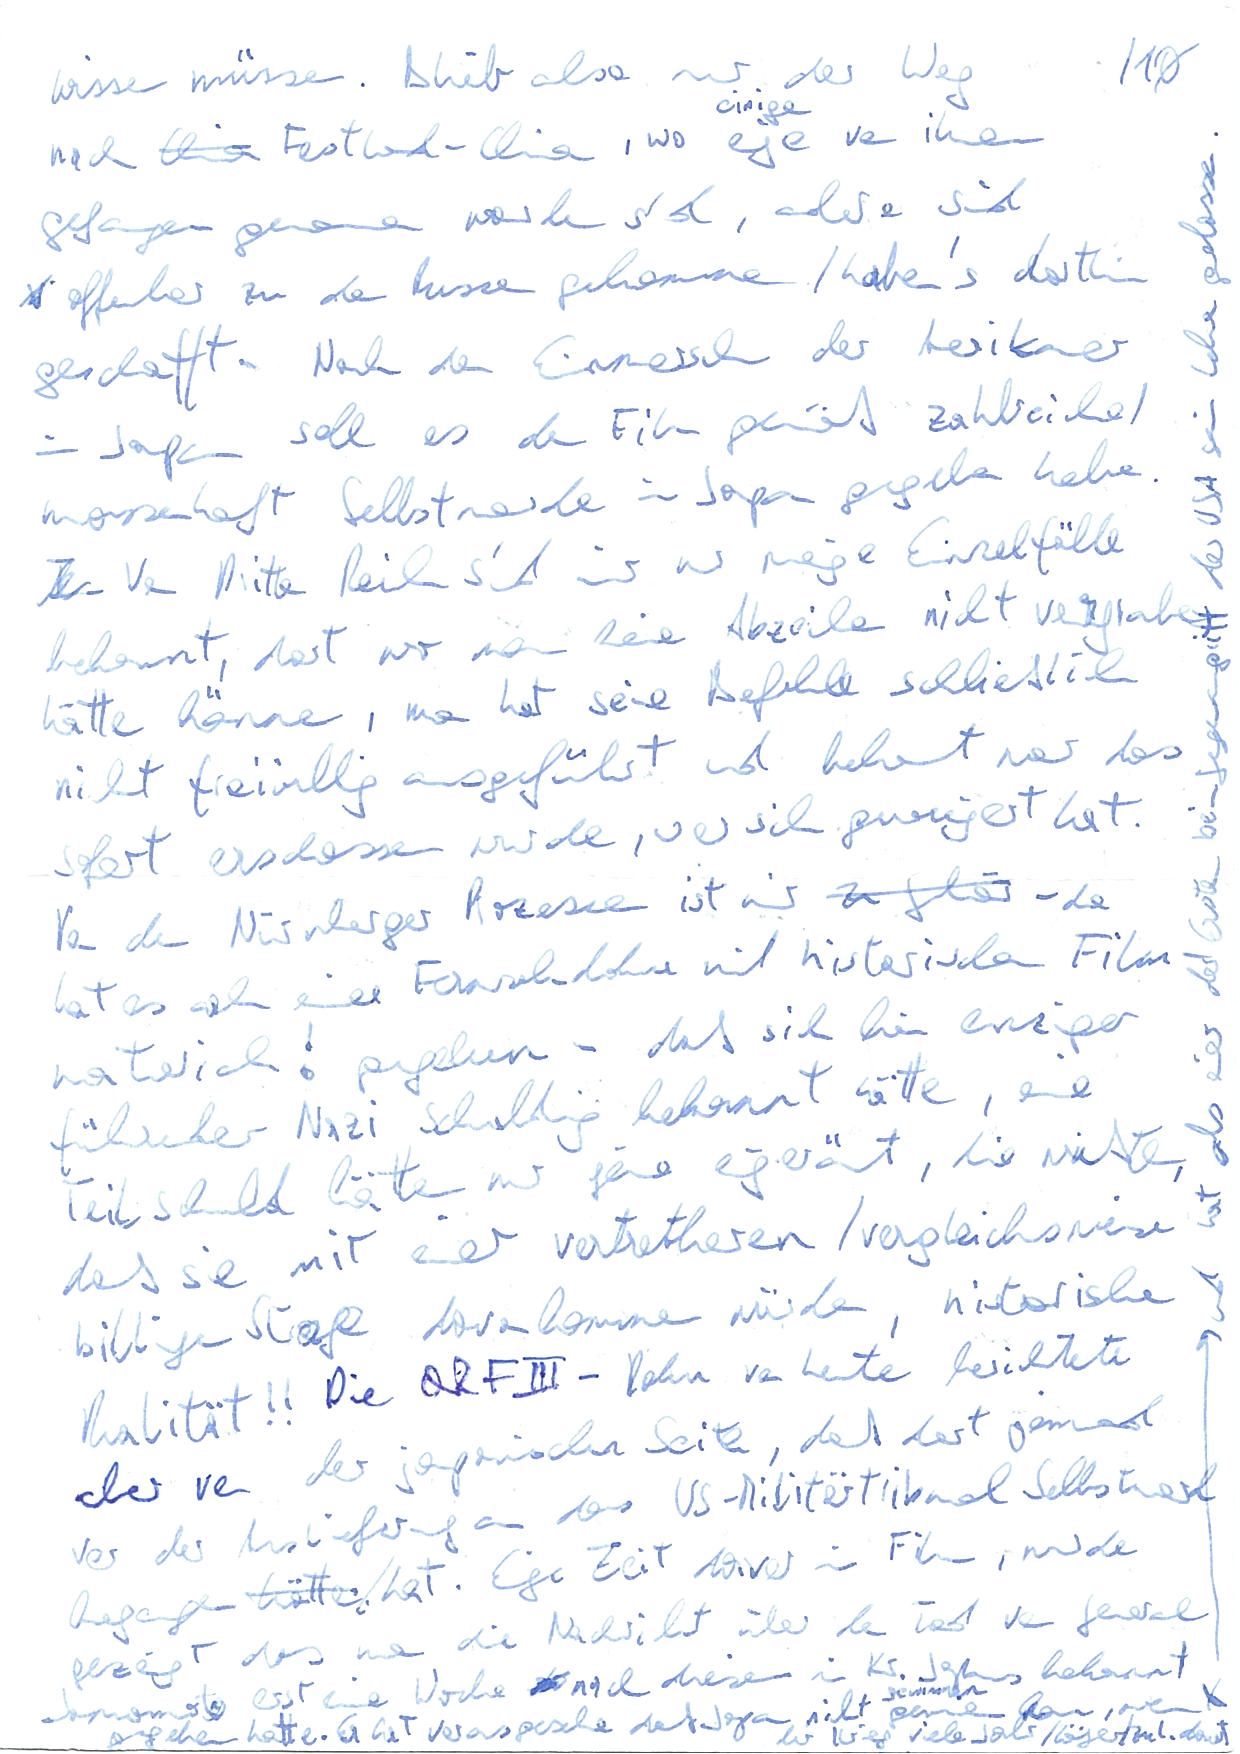 /10
wisse müsse. Blieb also nur der Weg
nach China Festland-China, wo einige von ihnen
gefangen genommen worden sind, andere sind
offenbar zu den Russen gekommen / haben's dorthin
geschafft. Nach dem Einmarsch der Amerikaner
in Japan soll es dem Film gemäß zahlreiche/
massenhaft Selbstmorde in Japan gegeben haben.
Vom Dritten Reich sind mir nur wenige Einzelfälle
bekannt, dort wo man seine Abzeichen nicht vergraben
hätte können, man hat seine Befehle schließlich
nicht freiwillig ausgeführt und bekannt war das
sofort erschossen wurde, wer sich geweigert hat.
Von den Nürnberger Prozessen ist mir - da
hat es auch eine Fernsehdoku mit historischem Film-
material! gegeben - daß sich kein einziger
führender Nazi schuldig bekannt hätte, eine
Teilschuld hätten nur jene eingeräumt, die wußten,
daß sie mit einer vertretbaren / vergleichsweise
billigen Strafe davonkommen würden, historische
Realität!! Die ORF III - Doku von heute berichtete
aber von der japanischen Seite, daß dort jemand
vor der Auslieferung an das US-Militärtribunal Selbstmord
begangen hätte/hat. Einige Zeit davor im Film, wurde
gezeigt das man die Nachricht über den Tod von General
Yamamoto erst eine Woche nach diesem in Japan bekannt
gegeben hatte. Er hat vorausgesehen daß Japan nicht gewinnen kann, wenn
der Krieg viele Jahre/länger
und hat als einer der Ersten beim gegen die USA sein Leben gelassen.